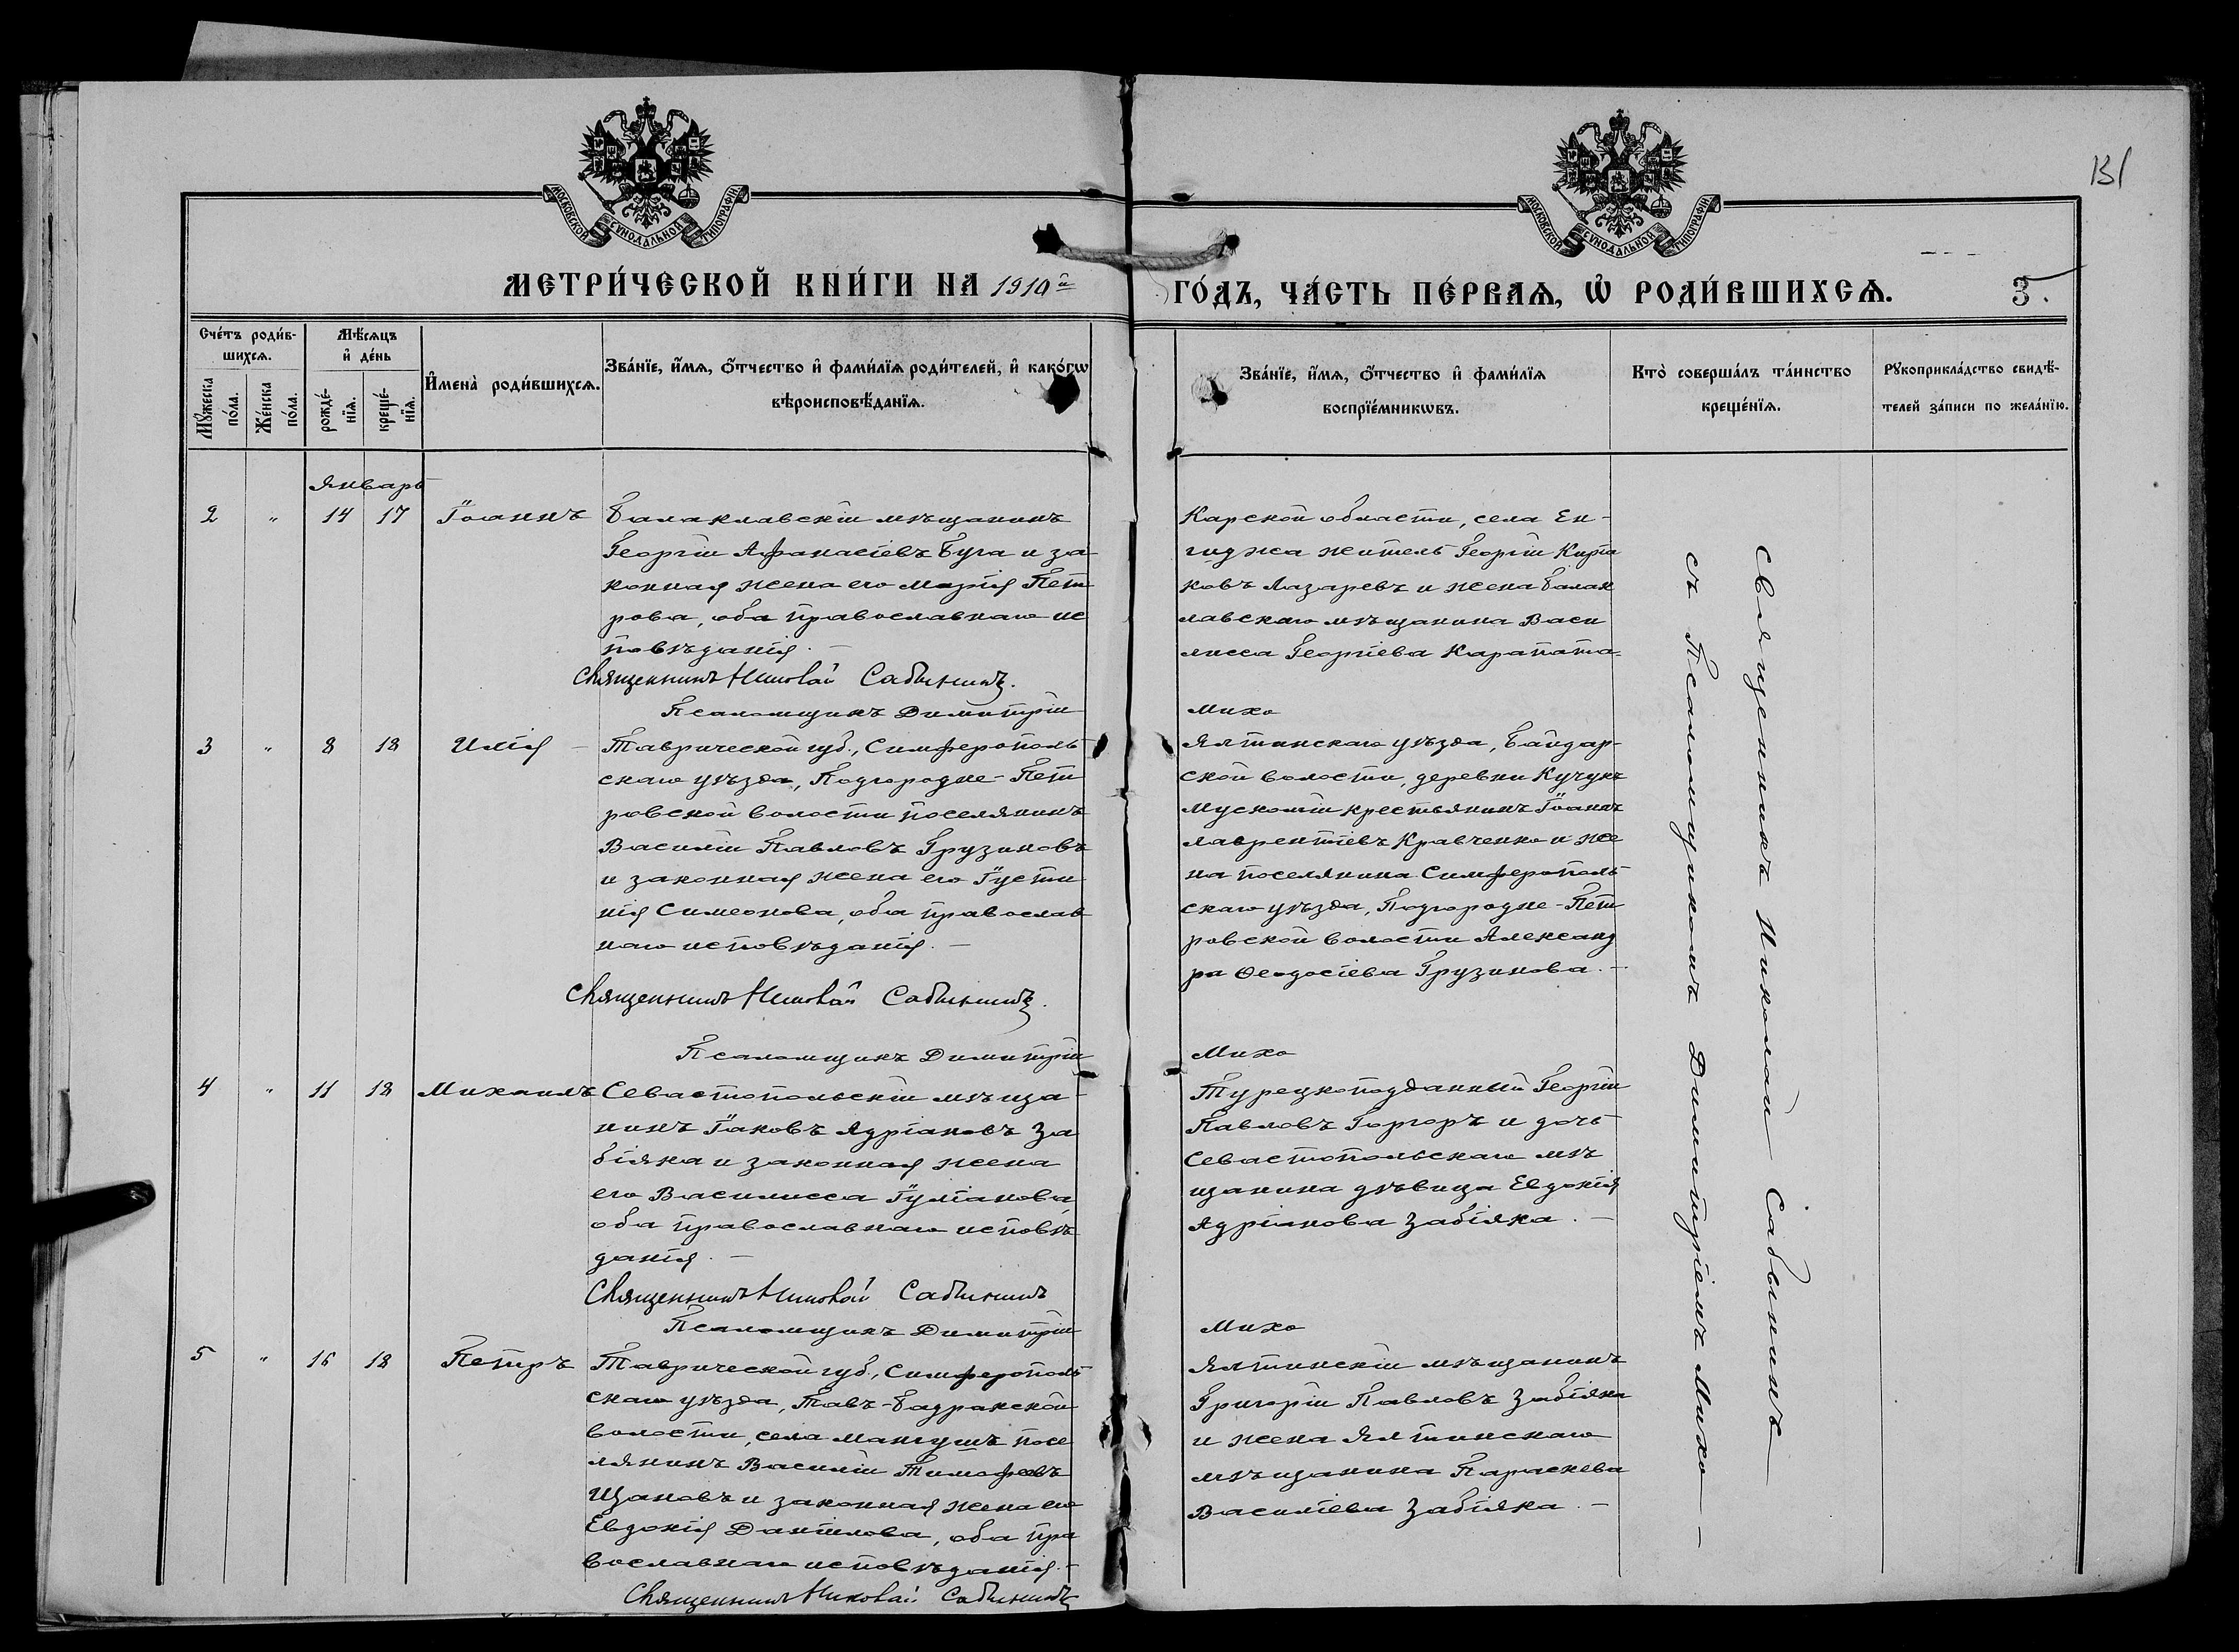 131
МОСКОВСКОЙ СѴНОДАЛЬНОЙ ТИПОГРАФІИ
МОСКОВСКОЙ СѴНОДАЛЬНОЙ ТИПОГРАФІИ
МЕТРИ́ЧЕСКОЙ КНИ́ГИ НА 1910й
ГО́ДЪ, ЧА́СТЬ ПЕ́РВАѦ, Ѡ҆ РОДИ́ВШИХСѦ. 3.
Сче́тъ роди́в-
шихсѧ.
Мꙋ́жеска по́ла.
Же́нска по́ла.
Мѣ́сѧцъ
и҆ де́нь
рожде́-
нїѧ.
креще́-
нїѧ.
И҆мена̀ роди́вшихсѧ.
Зва́нїе, и҆́мѧ, ѻ҆́тчество и҆ фами́лїѧ роди́телей, и҆ како́гѡ
вѣроисповѣ́данїѧ.
Зва́нїе, и҆́мѧ, ѻ҆́тчество и҆ фами́лїѧ
воспрїе́мникѡвъ.
Кто̀ соверша́лъ та́инство
креще́нїѧ.
Рꙋкоприкла́дство свидѣ́-
телей за́писи по жела́нїю.
Январь
2 " 14 17 Іоаннъ
Балаклавскій мѣщанинъ
Георгій Афанасіевъ Буга и за
конная жена его Марія Пет
рова, оба православнаго ис
повѣданія. —
Священникъ Николай Сабынинъ.
Псаломщикъ Димитрій
Карской области, села Ен-
гиджа житель Георгій Киріа
ковъ Лазаревъ и жена балак
лавскаго мѣщанина Васи
лисса Георгіева Карапата-
Михо
3 " 8 18 Илія —
Таврической губ., Симферополь
скаго уѣзда, Подгородне-Пет
ровской волости поселянинъ
Василій Павловъ Грузиновъ
и законная жена его Іусти
нія Симеонова, оба православ
наго исповѣданія. —
Священникъ Николай Сабынинъ.
Псаломщикъ Димитрій
Ялтинскаго уѣзда, Байдар-
ской волости, деревни Кучукъ
Мускомія крестьянинъ Іоаннъ
Лаврентіевъ Кравченко и же
на поселянина Симферополь
скаго уѣзда, Подгородне-Пет
ровской волости Александ
ра Ѳеодосіева Грузинова. —
Михо
4 " 11 18 Михаилъ
Севастопольскій мѣща-
нинъ Іаковъ Адріановъ За
біяка и законная жена
его Василисса Іуліанова,
оба православнаго исповѣ
данія. —
Священникъ Николай Сабынинъ
Псаломщикъ Димитрій
Турецкоподданный Георгій
Павловъ Горгоръ и дочь
Севастопольскаго мѣ
щанина дѣвица Евдокія
Адріанова Забіяка. —
Михо
5 " 16 18 Петръ
Таврической губ., Симферополь
скаго уѣзда, Тавъ-Бадракской
волости, села Мангушъ посе
лянинъ Василій Тимофеевъ
Щановъ и законная жена его
Евдокія Даніилова, оба пра
вославнаго исповѣданія. —
Священникъ Николай Сабынинъ
Ялтинскій мѣщанинъ
Григорій Павловъ Забіяка
и жена Ялтинскаго
мѣщанина Параскева
Василіева Забіяка. —
Священникъ Николай Сабынинъ —
съ Псаломщикомъ Димитріемъ Михо —